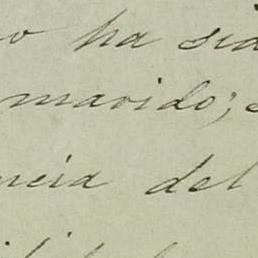 ha sid
marido;
ncia del